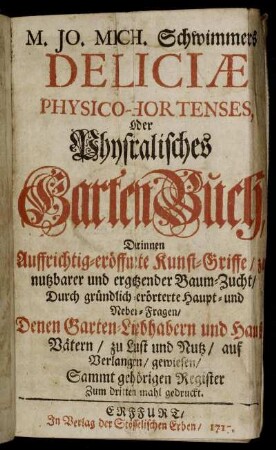 M. JO. MICH. Schwimmers
DELICIÆ
PHYSICO-HORTENSES,
Oder
Physicalisches
Garten Buch,
Darinnen
Auffrichtig-eröffnete Kunst-Griffe /
nutzbarer und ergetzender Baum-Zucht/
Durch gründlich-erörterte Haupt- und
Neben-Fragen/
Denen Garten-Liebhabern und Hauß
Vätern / zu Lust und Nutz / auf
Verlangen / gewiesen /
Sammt gehörigen Register
Zum dritten mahl gedruckt.
ERFFURT/
In Verlag der Stößelischen Erben/ 1717.